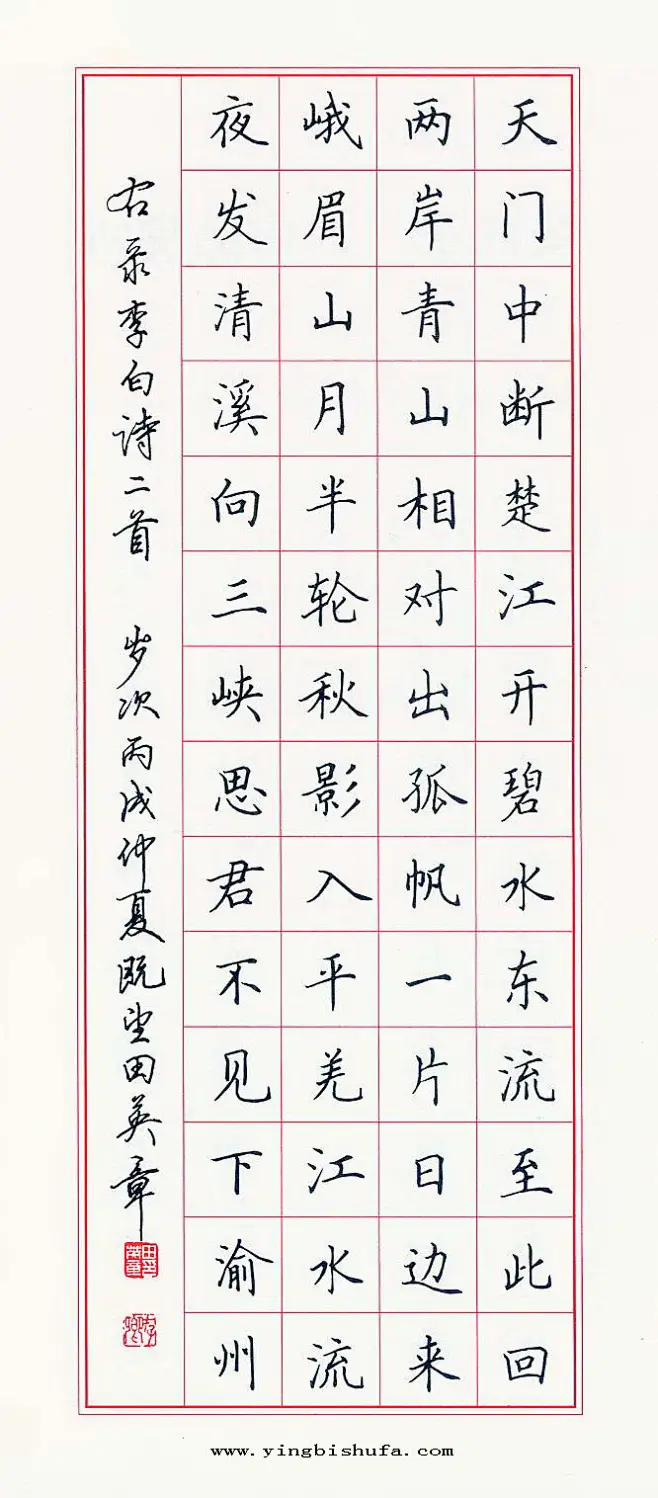 天门中断楚江开碧水东流至此回
两岸青山相对出孤帆一片日边来
峨眉山月半轮秋影入平羌江水流
夜发清溪向三峡思君不见下渝州
右录李白诗二首 岁次丙戌仲夏既望田英章
田英章
www.yingbishufa.com